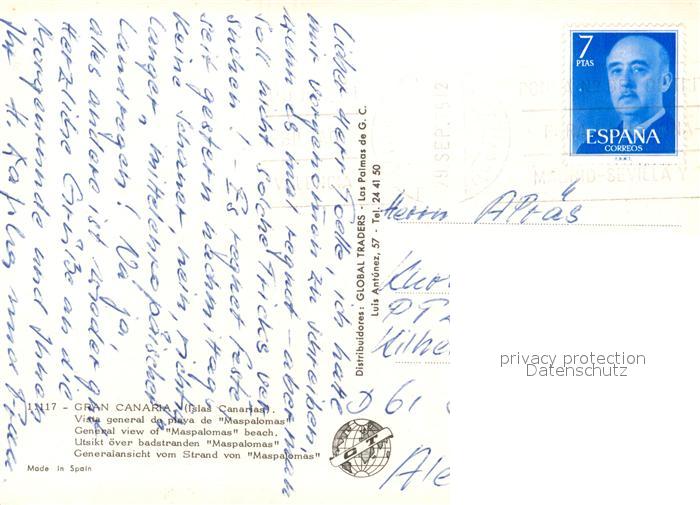 Lieber Herr Tölle, ich hatte
mir vorgenommen zu schreiben,
wenn es mal regnet - aber man
soll nicht solche Tricks ver-
suchen! - Es regnet fest
seit gestern nachmittag,
keine Schauer, nein, richtig
langer, mitteleuropäischer
Landregen! Na ja,
alles andere ist wieder gut
Herzliche Grüße an die
Morgenrunde und Ihnen
Ihr H. und Frau.
Distribuidores: GLOBAL TRADERS - Las Palmas de G. C.
Luis Antúnez, 57 - Tel. 24 41 50
7
PTAS
ESPAÑA
CORREOS
SEP.
MADRID-SEVILLA Y
Herrn
D 61
privacy protection
Datenschutz
11117 - GRAN CANARIA (Islas Canarias).
Vista general de playa de "Maspalomas"
General view of "Maspalomas" beach.
Utsikt över badstranden "Maspalomas"
Generalansicht vom Strand von "Maspalomas"
Made in Spain